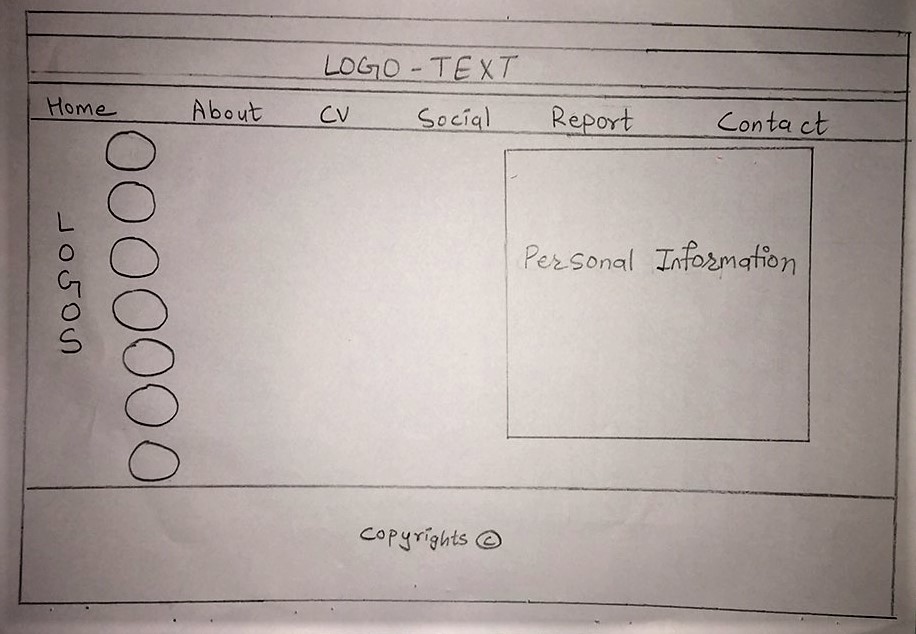 LOGO - TEXT
Home About CV Social Report Contact
LOGOS
Personal Information
Copyrights ©